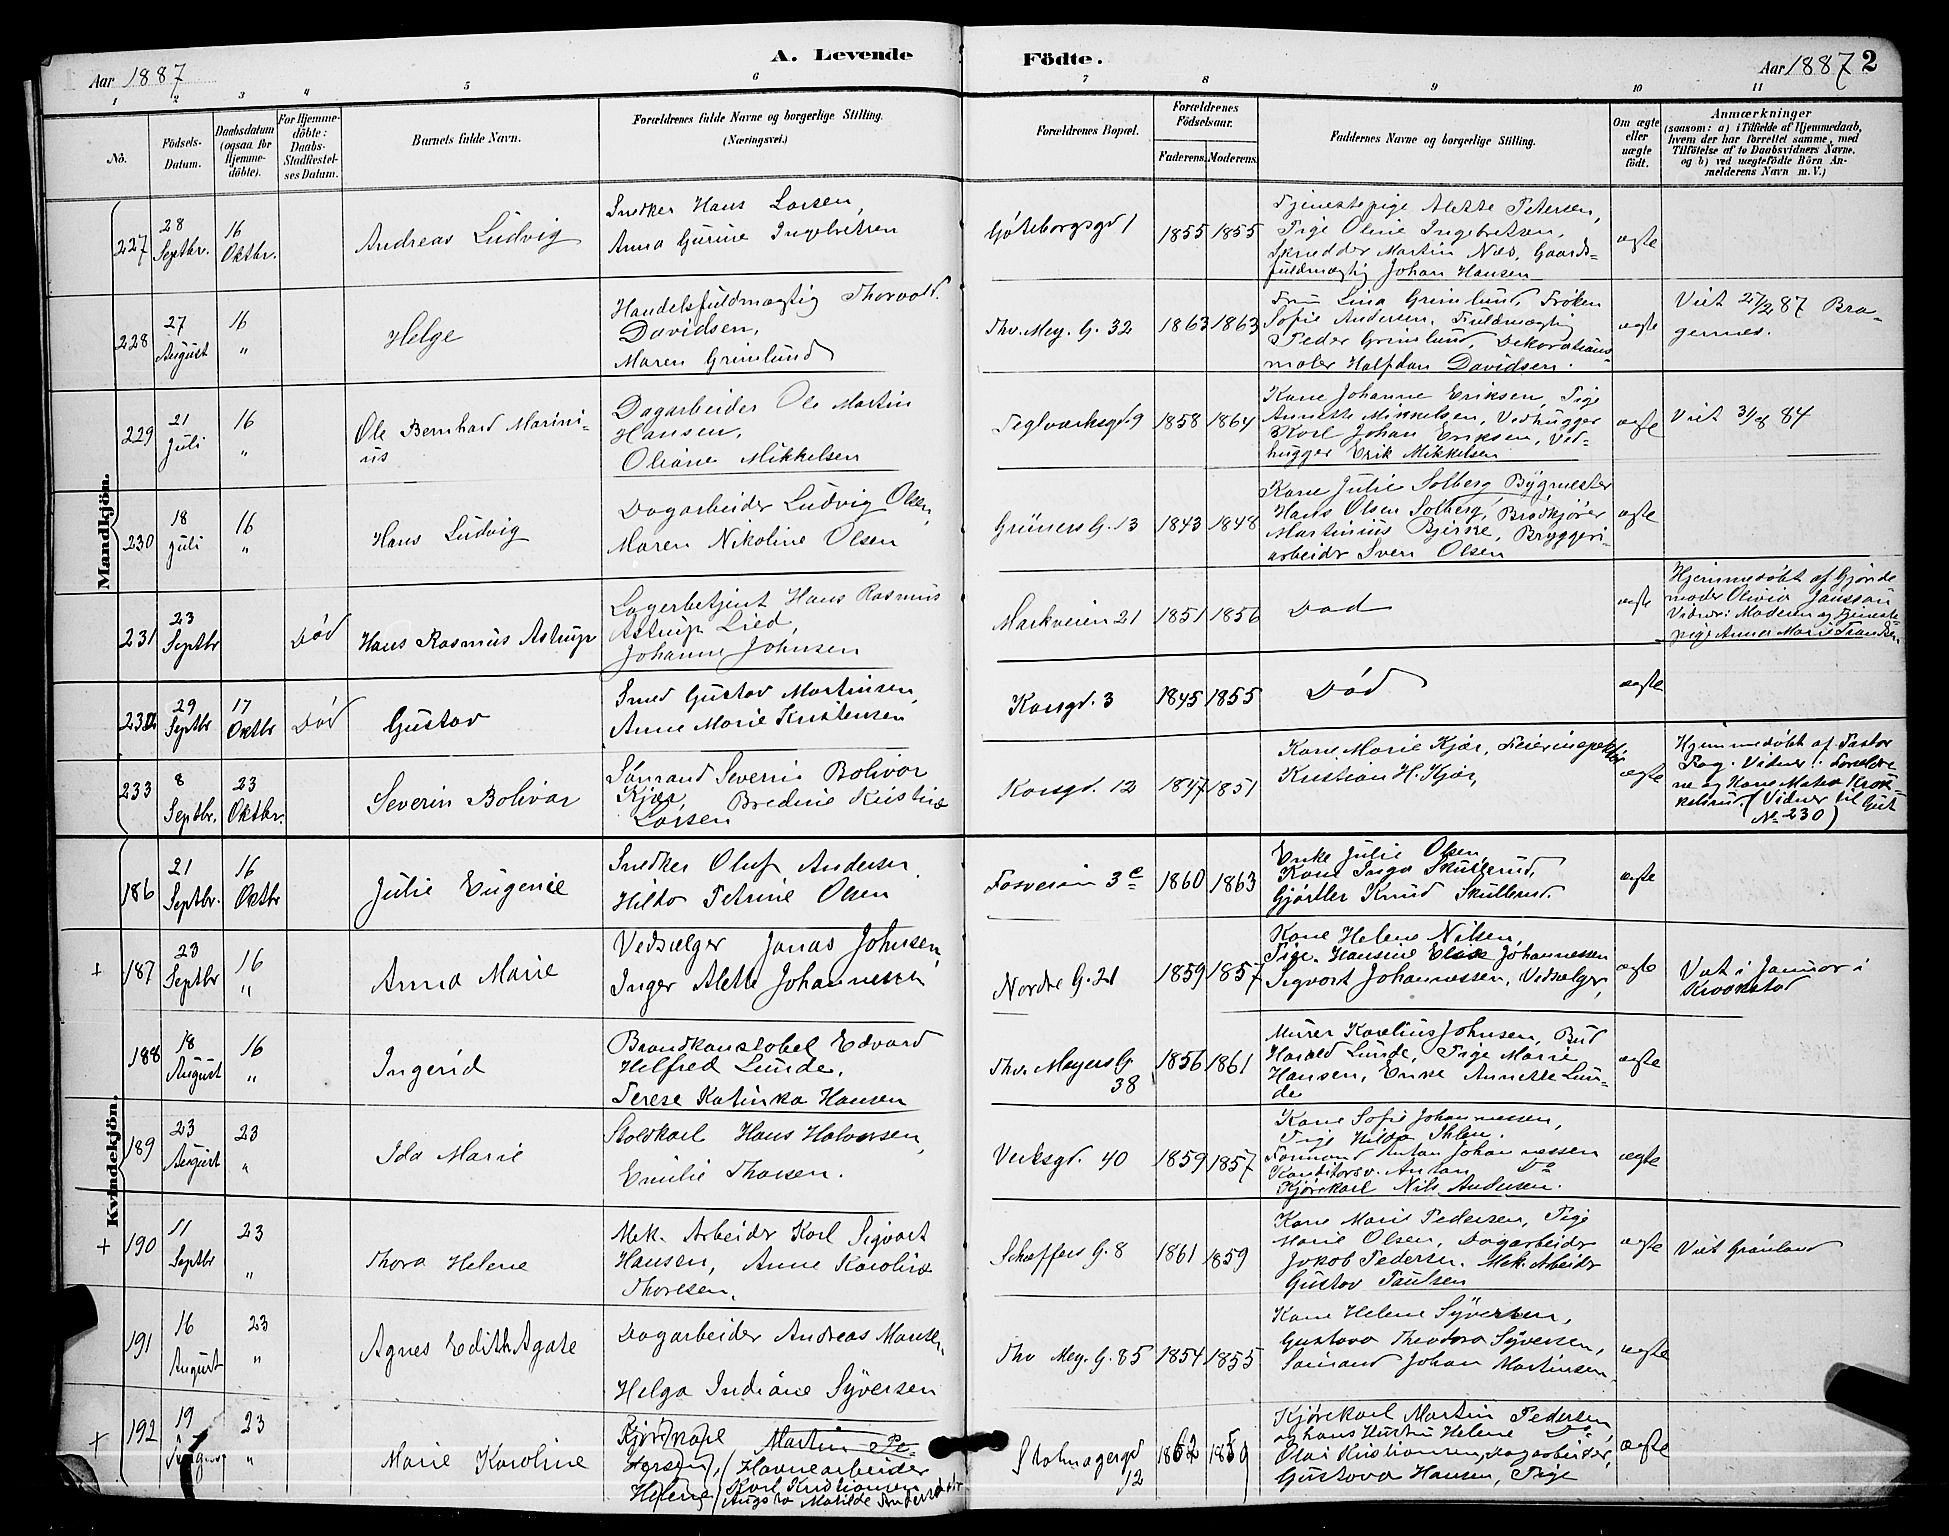 A. Levende
Fødte.
Aar 1887
Aar 1887
2
1 2 3 4 5 6 7 8 9 10 11
No.
Fødsels-
Datum.
Daabsdatum
(ogsaa for
Hjemme-
døbte).
For Hjemme-
døbte:
Daabs-
Stadfæstel-
ses Datum.
Barnets fulde Navn.
Forældrenes fulde Navne og borgerlige Stilling.
(Næringsvei.)
Forældrenes Bopæl.
Forældrenes
Fødselsaar.
Faderens. Moderens.
Faddernes Navne og borgerlige Stilling.
Om ægte
eller
uægte
født.
Anmærkninger
(saasom: a) i Tilfælde af Hjemmedaab,
hvem der har forrettet samme, med
Tilføielse af to Daabsvidners Navne,
og b) ved uægtefødte Börn An-
melderens Navn m. V.)
Mandkjön.
227
28
Septbr.
16
Oktbr.
Andreas Ludvig
Snedker Hans Larsen,
Anna Gurine Ingebretsen
Gøteborgsgd 1
1855 1855
Tjenestepige Alette Petersen,
Pige Oline Ingebretsen,
Skredder Martin Næs, Gaards-
fuldmægtig Johan Hansen
ægte
228
27
August
16
"
Helge
Handelsfuldmægtig Thorvald
Davidsen,
Maren Grimlund
Thv. Mey. G. 32
1863 1863
Fru Lina Grimlund, Frøken
Sofie Andersen, Fuldmægtig
Peder Grimlund, Dekorations-
maler Halfdan Davidsen.
ægte
Viet 27/2 87 Bra-
gernes.
229
21
Juli
16
"
Ole Bernhard Marini-
us
Dagarbeider Ole Martin
Hansen,
Oliane Mikkelsen
Teglværksgd. 9
1858 1864
Kone Johanne Eriksen, Pige
Annette Mikkelsen, Vedhugger
Karl Johan Eriksen, Ved-
hugger Erik Mikkelsen
ægte
Viet 84
230
18
Juli
16
"
Hans Ludvig
Dagarbeider Ludvig Olsen,
Maren Nikoline Olsen
Grüners G. 13
1843 1848
Kone Julie Solberg Bygmester
Hans Olsen Solberg, Brødkjører
Martinius Bjerke, Bryggeri-
arbeidr Sven Olsen
ægte
231
23
Septbr
Død
Hans Rasmus Astrup
Lagerbetjent Hans Rasmus
Astrup Lied,
Johanne Johnsen
Markveien 21
1851 1856
Død
ægte
Hjemmedøbt af Gjorde
moder Olivia Janssøn
Vidner: Moderen og Tjeneste-
pige Anna Marie Frandsen
232
29
Septbr
17
Oktbr
Død
Gustav
Smed Gustav Martinsen,
Anne Marie Kristensen
Korsgd. 3
1845 1855
Død
ægte
233
8
Septbr.
23
Oktbr.
Severin Bolivar
Sømand Severin Bolivar
Kjær, Bredine Kristine
Larsen
Korsgd. 12
1847 1851
Kone Marie Kjær, Feierinspektør
Kristian H. Kjær,
ægte
Hjemmedøbt af Pastor
Vidner: Forældre
ne og Kone
(Vidner til Gut
No 230)
Kvindekjön.
186
21
Septbr.
16
Oktbr
Julie Eugenie
Snedker Oluf Andersen
Hilda Petrine Olsen
Fosveien 3c
1860 1863
Enke Julie Olsen
Kone Inga Skullerud
Gjørtler Knud Skullerud.
ægte
+ 187
23
Septbr
16
"
Anna Marie
Vedsælger Jonas Johnsen,
Inger Alette Johannesen
Nordre G. 21
1859 1857
Kone Helene Nilsen,
Pige Hansine Elise Johannessen
Sigvart Johannessen, Vedsælger,
ægte
Viet i Januar i
Krookstad
188
18
August
16
"
Ingerid
Brandkonstabel Edvard
Helfred Lunde,
Terese Katinka Hansen
Thv. Meyers G
38
1856 1861
Murer Karelius Johnsen, Bud
Harald Lunde, Pige Marie
Hansen, Enke Annette Lun-
de
ægte
189
23
August
23
"
Ida Marie
Staldkarl Hans Halvorsen,
Emilie Thorsen.
Verksgd. 40
1859 1857
Kone Sofie Johannessen,
Pige Hilda Ihlen.
Formand Anton Johannessen
Konditorsv. Anton Do
Kjørekarl Nils Andersen.
ægte
+ 190
11
Septbr
23
"
Thora Helene
Mek. Arbeidr Karl Sigvart
Hansen, Anne Karoline
Thoresen,
Schæffers G. 8
1861 1859
Kone Marie Pedersen, Pige
Marie Olsen, Dagarbeidr
Jakob Pedersen. Mek. Arbeidr
Gustav Paulsen
ægte
Viet Grønland
191
16
August
23
"
Agnes Edith Agate
Dagarbeider Andreas Hansen,
Helga Indiane Syversen
Thv Mey. G. 85
1854 1855
Kone Helene Syversen,
Gustava Theodora Syversen,
Sømand Johan Martinsen.
ægte
+ 192
19
August
23
"
Marie Karoline
Kjørekarl Martin Pe
dersen, (Havnearbeider
Helene (Karl Kristiansen
Augusta Matilde
Stolmagergd
12
1862 1859
Kjørekarl Martin Pedersen,
og hans Hustru Helene Do,
Olai Kristiansen, Dagarbeider,
Gustava Hansen, Pige
ægte